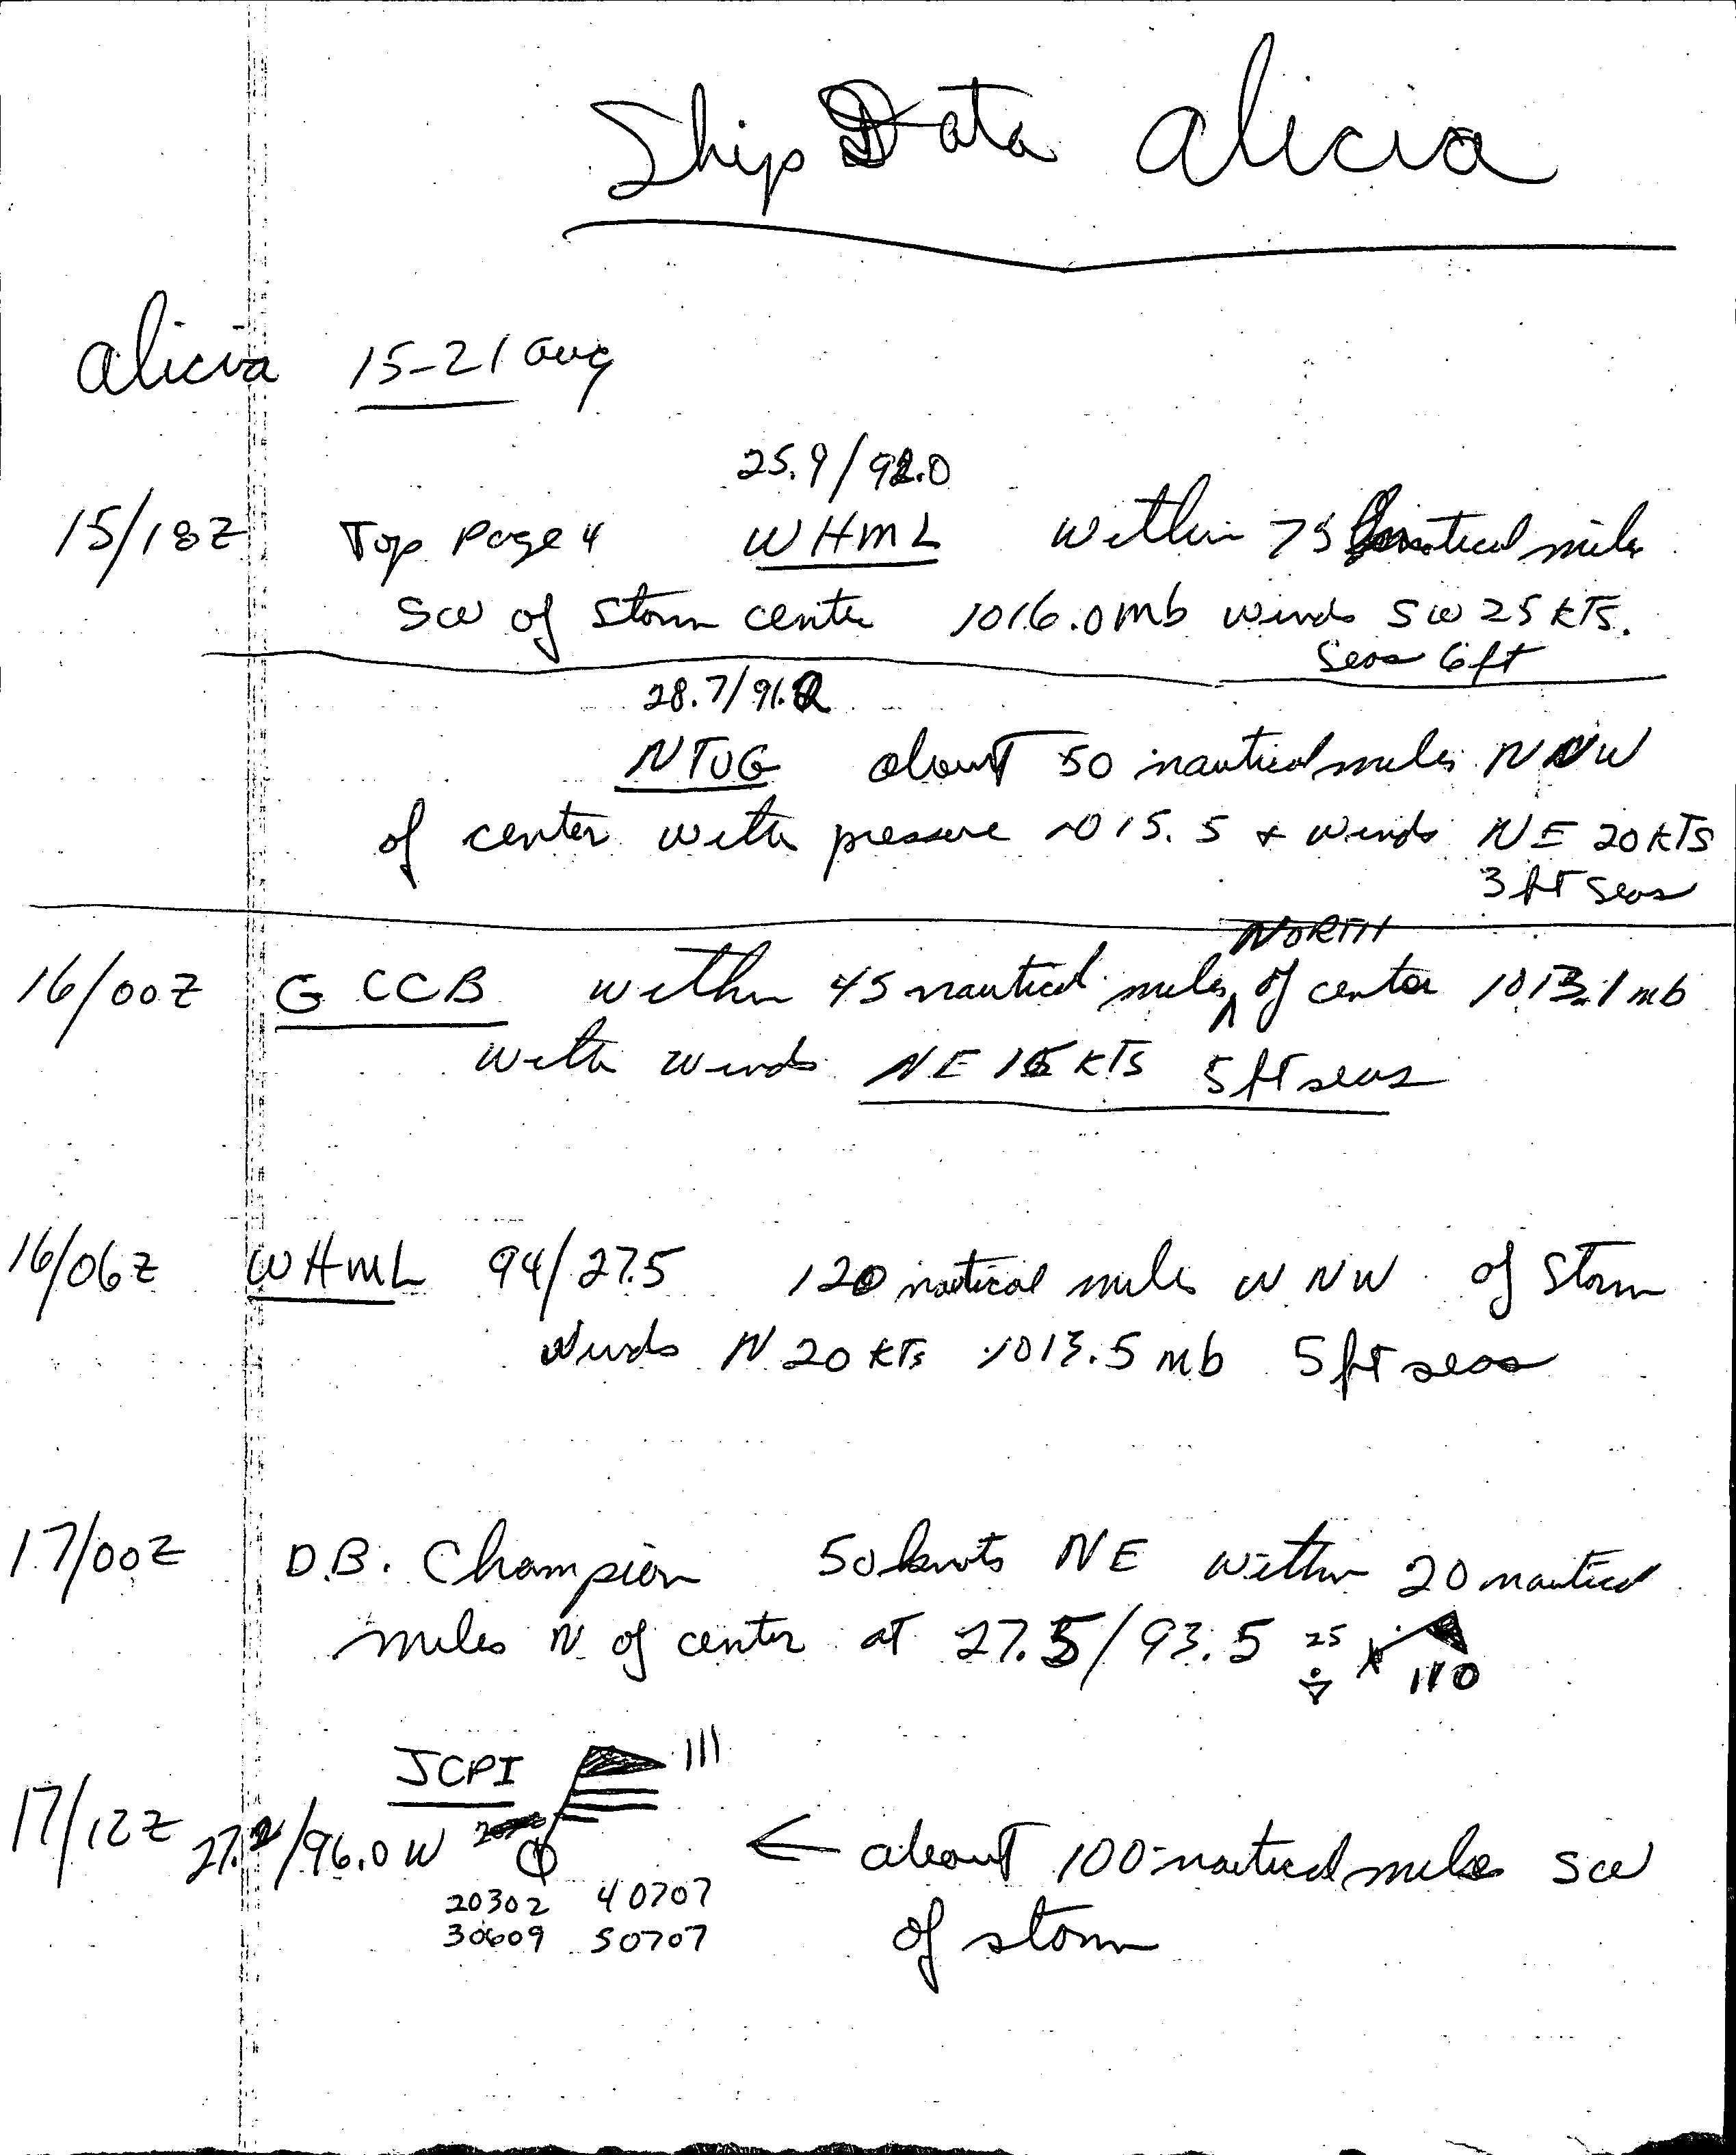 Ship Data Alicia
Alicia 15-21 Aug
25.9/92.0
15/18Z Top Page 4 WHML within 75 nautical miles
SW of storm center 1016.0 mb winds SW 25 KTS.
Seas 6ft
28.7/91.2
NTUG about 50 nautical miles NNW
of center with pressure 1015.5 & winds NE 20 KTS
3 ft seas
NORTH
16/00Z GCCB within 45 nautical miles of center 1013.1 mb
with winds NE 15 KTS 5 ft seas
16/06Z WHML 94/27.5 120 nautical miles WNW of storm
winds N 20 KTS 1013.5 mb 5 ft seas
17/00Z D.B. Champion 50 knots NE within 20 nautical
miles N of center at 27.5/93.5 25 110
JCPI 111
17/12Z 27.2/96.0 W ← about 100 nautical miles SW
20302 40707
30609 50707 of storm